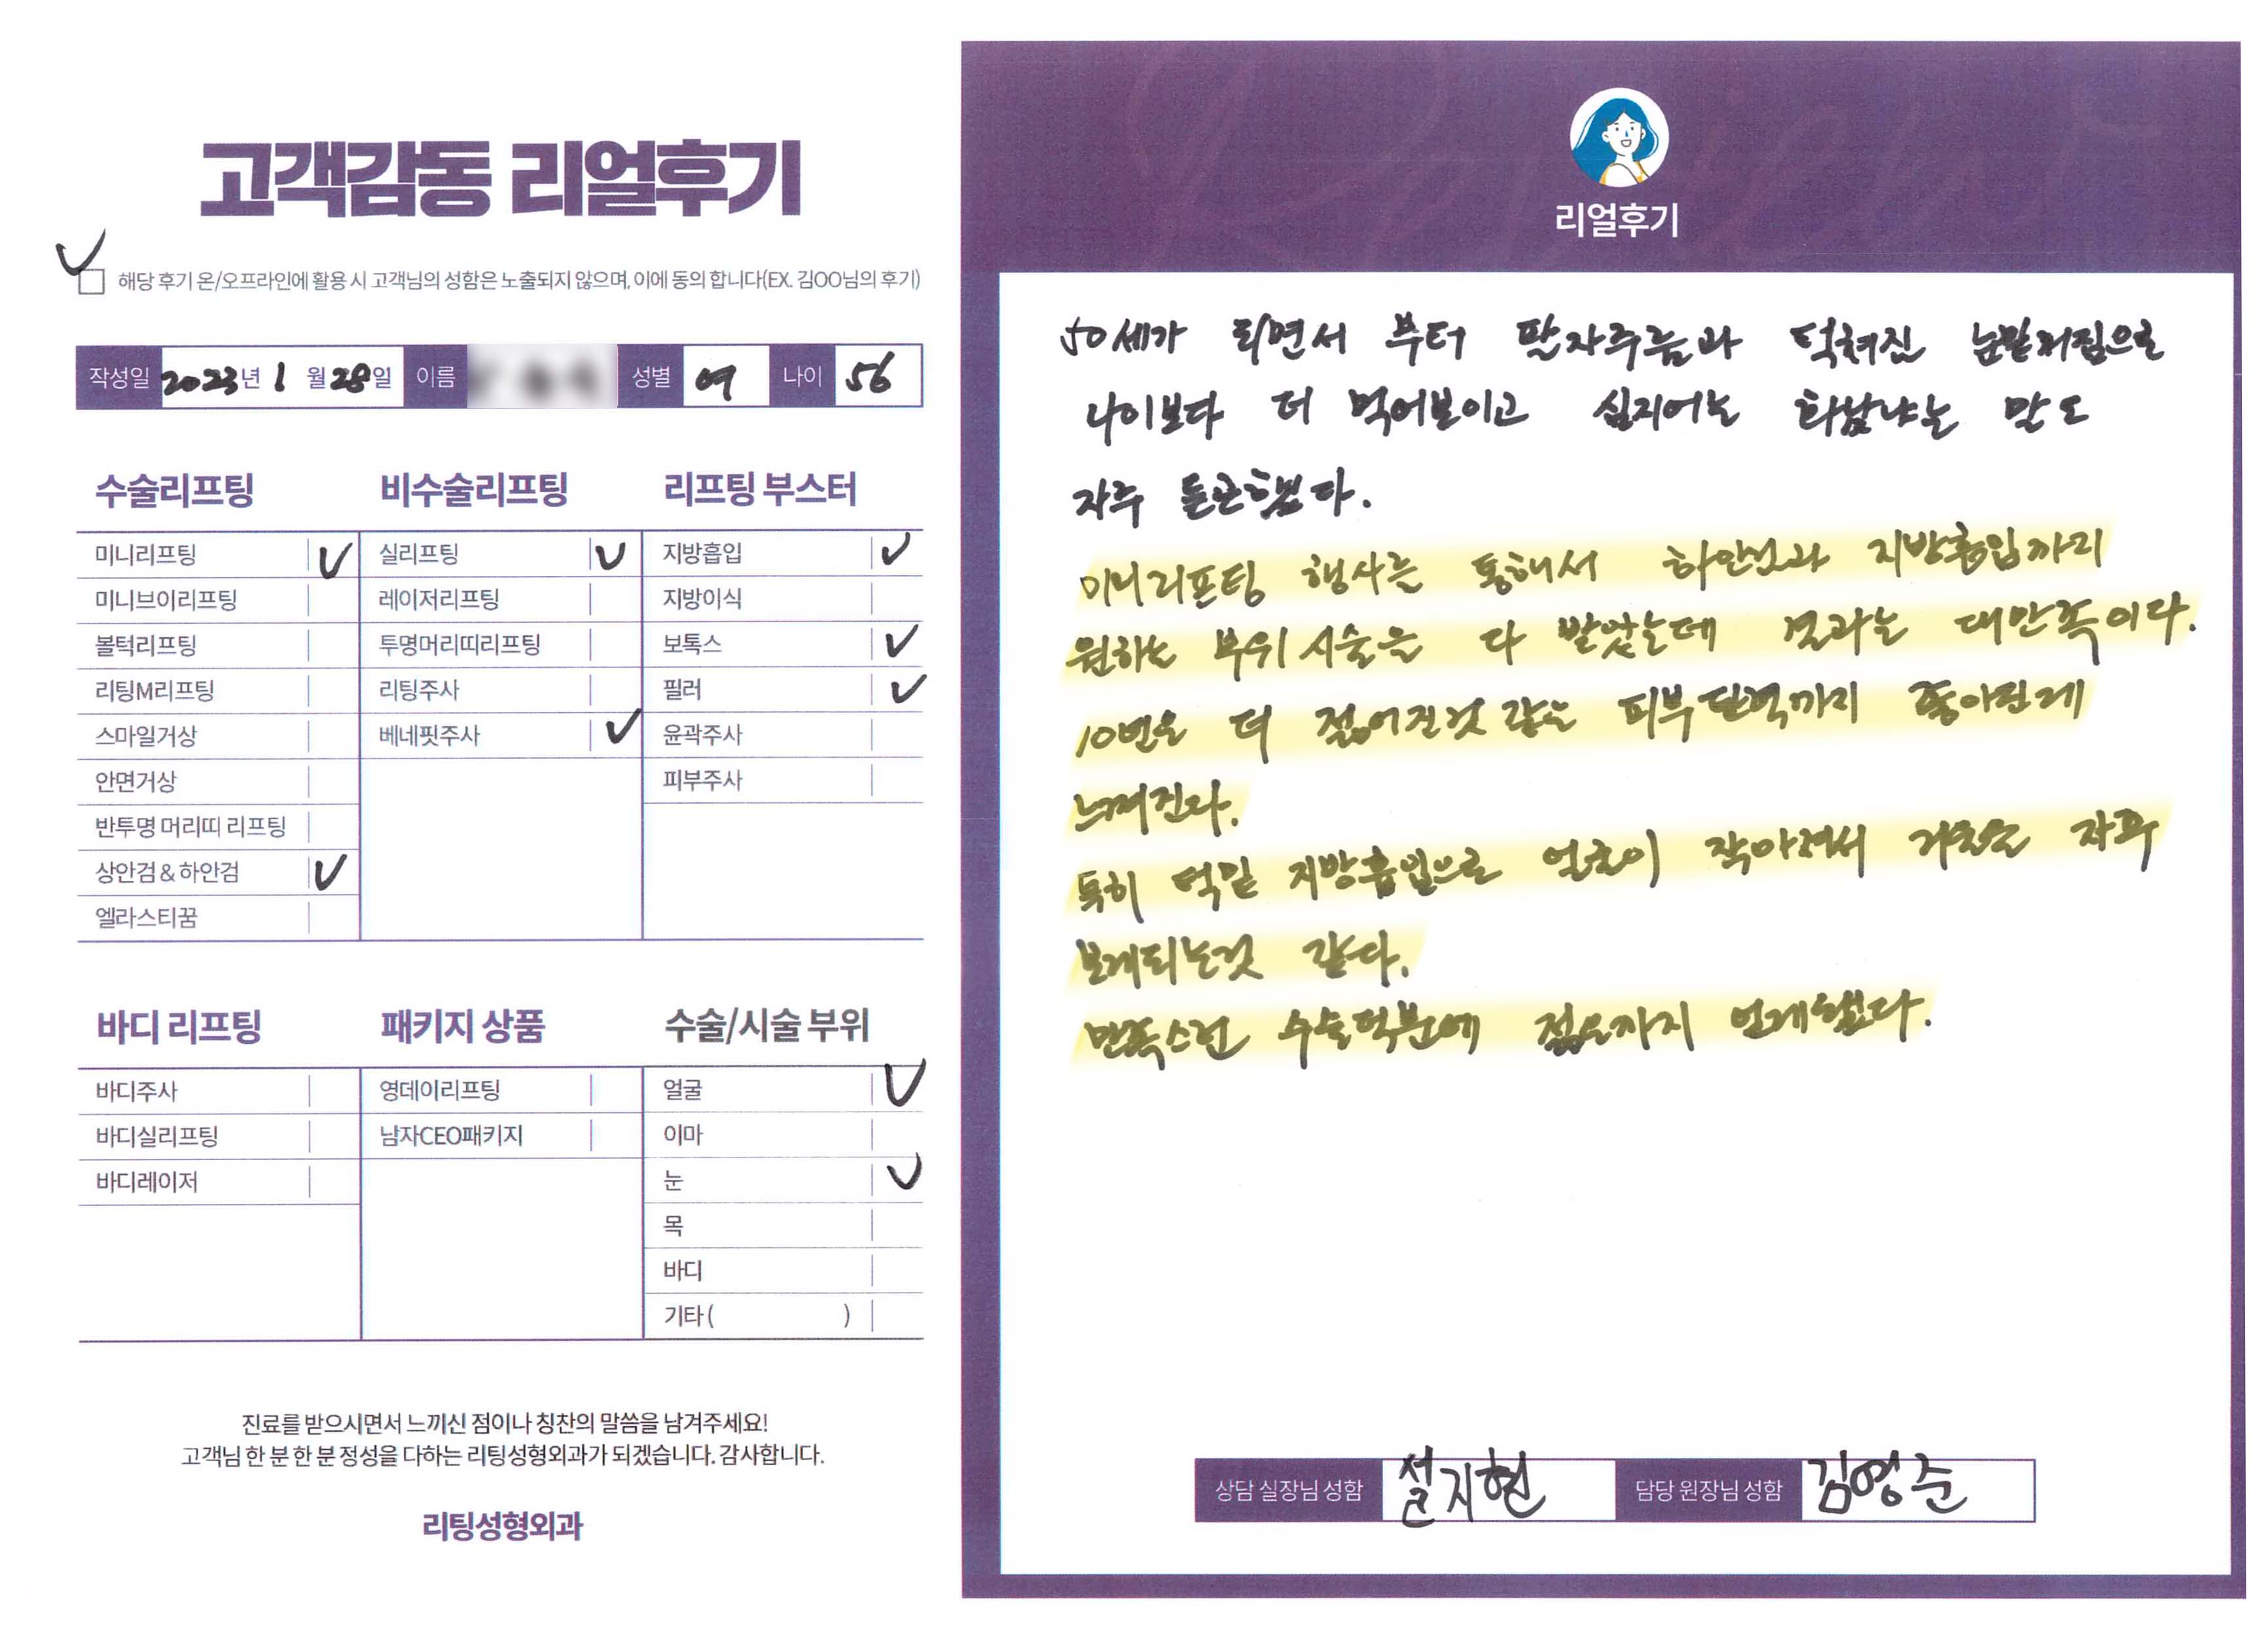 고객감동 리얼후기
해당 후기 온/오프라인에 활용 시 고객님의 성함은 노출되지 않으며, 이에 동의 합니다(EX. 김OO님의 후기)
작성일 2023년 1월 28일 이름 성별 여 나이 56
수술리프팅
미니리프팅
미니브이리프팅
볼턱리프팅
리팅M리프팅
스마일거상
안면거상
반투명 머리띠 리프팅
상안검 & 하안검
엘라스티꿈
비수술리프팅
실리프팅
레이저리프팅
투명머리띠리프팅
리팅주사
베네핏주사
리프팅 부스터
지방흡입
지방이식
보톡스
필러
윤곽주사
피부주사
바디 리프팅
바디주사
바디실리프팅
바디레이저
패키지 상품
영데이리프팅
남자CEO패키지
수술/시술 부위
얼굴
이마
눈
목
바디
기타 ( )
진료를 받으시면서 느끼신 점이나 칭찬의 말씀을 남겨주세요!
고객님 한 분 한 분 정성을 다하는 리팅성형외과가 되겠습니다. 감사합니다.
리팅성형외과
리얼후기
50세가 되면서 부터 팔자주름과 눈밑처짐으로
나이보다 더 먹어보이고 심지어는 화났냐는 말도
자주 듣곤했다.
미니리프팅 행사를 통해서 하안검과 지방흡입까지
원하는 부위 시술을 다 받았는데 결과는 대만족이다.
10년은 더 젊어진것 같은 피부탄력까지 좋아진게
느껴진다.
특히 턱밑 지방흡입으로 얼굴이 작아져서 거울을 자꾸
보게되는것 같다.
만족스런 수술덕분에 젊음까지 얻게됐다.
상담 실장님 성함 설지현 담당 원장님 성함 김영준